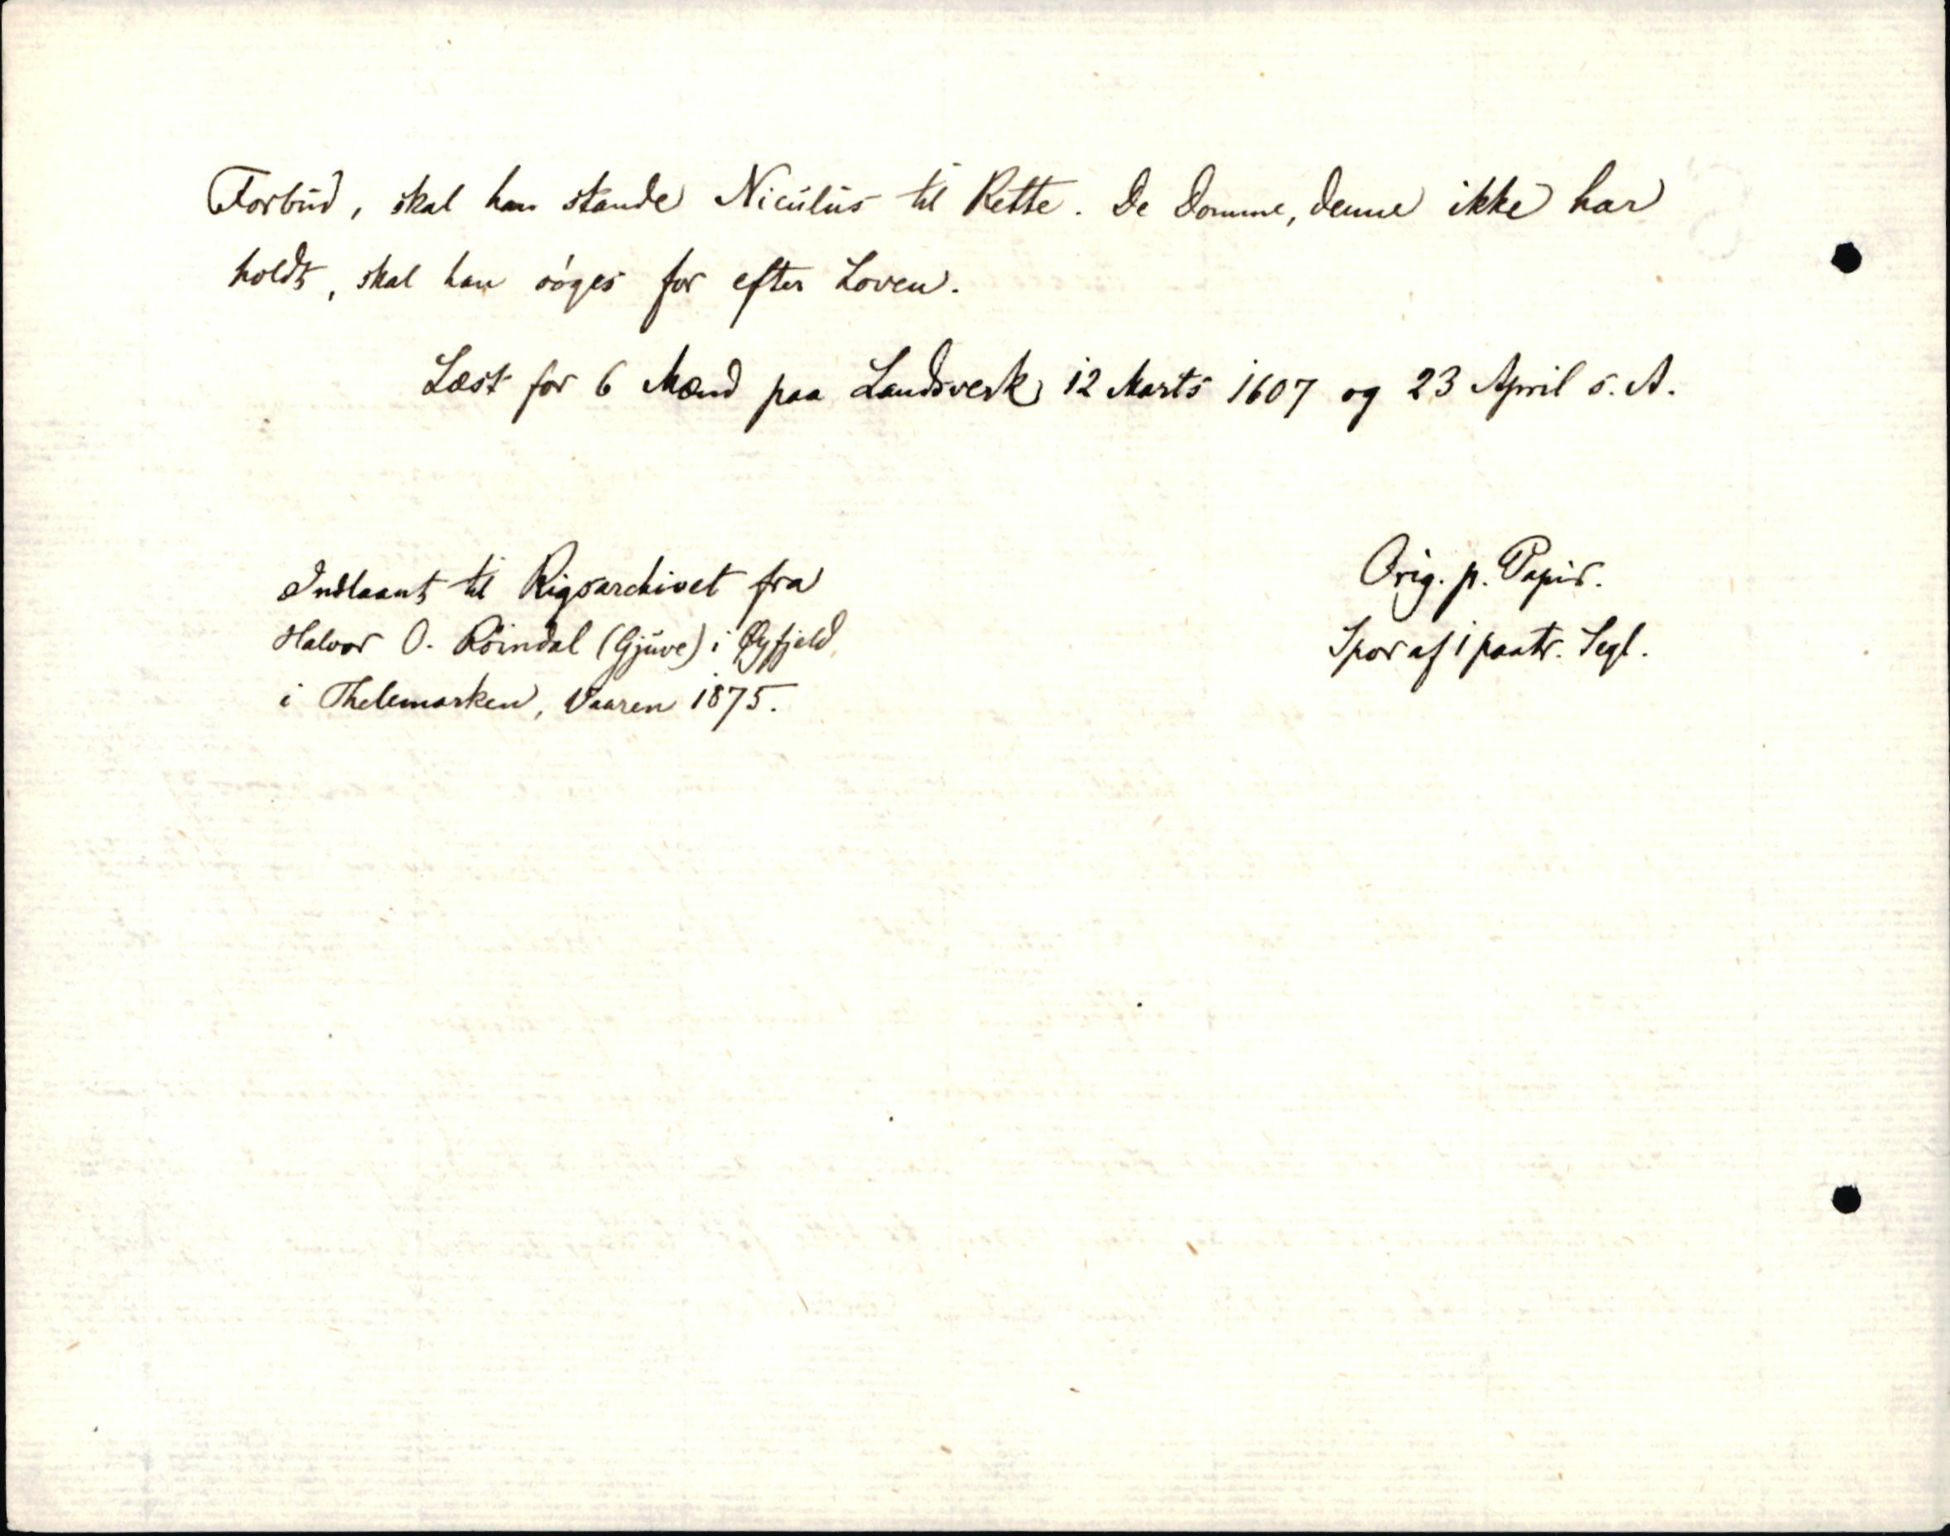 Forbud, skal han stande Niculus til Rette. De Domme, denne ikke har
holdt, skal han søges for efter Loven.
Læst for 6 Mænd paa Landsverk 12 Marts 1607 og 23 April s. A.
Indlaant til Rigsarchivet fra
Halvor O. Röindal (Gjuve) i Øyfjeld
i Thelemarken, Vaaren 1875.
Orig. p. Papir.
Spor af 1 paatr. Segl.